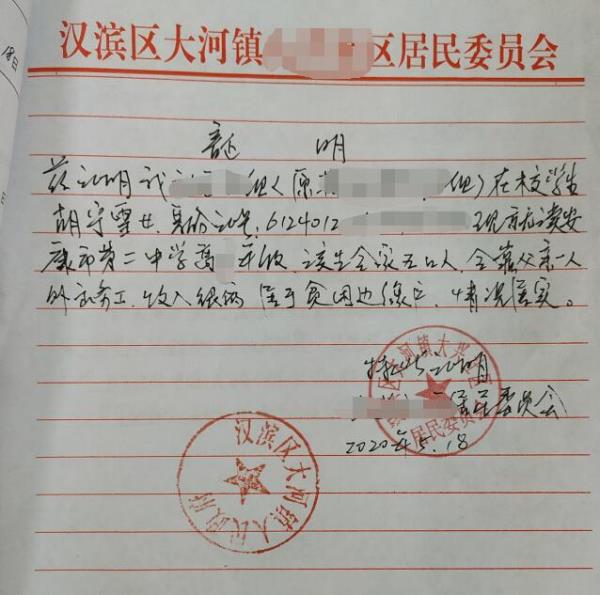 18日
汉滨区大河镇 区居民委员会
证 明
兹证明我 组(原 组)在校学生
胡守雪女,身份证号:6124012 现就读安
康市第二中学高 年级,该生全家五口人,全靠父亲一人
外出务工,收入很低 属于贫困边缘户,情况属实。
特此证明
居民委员会
2020年5.18
汉滨区大河镇大兴 区居民委员会
汉滨区大河镇人民政府